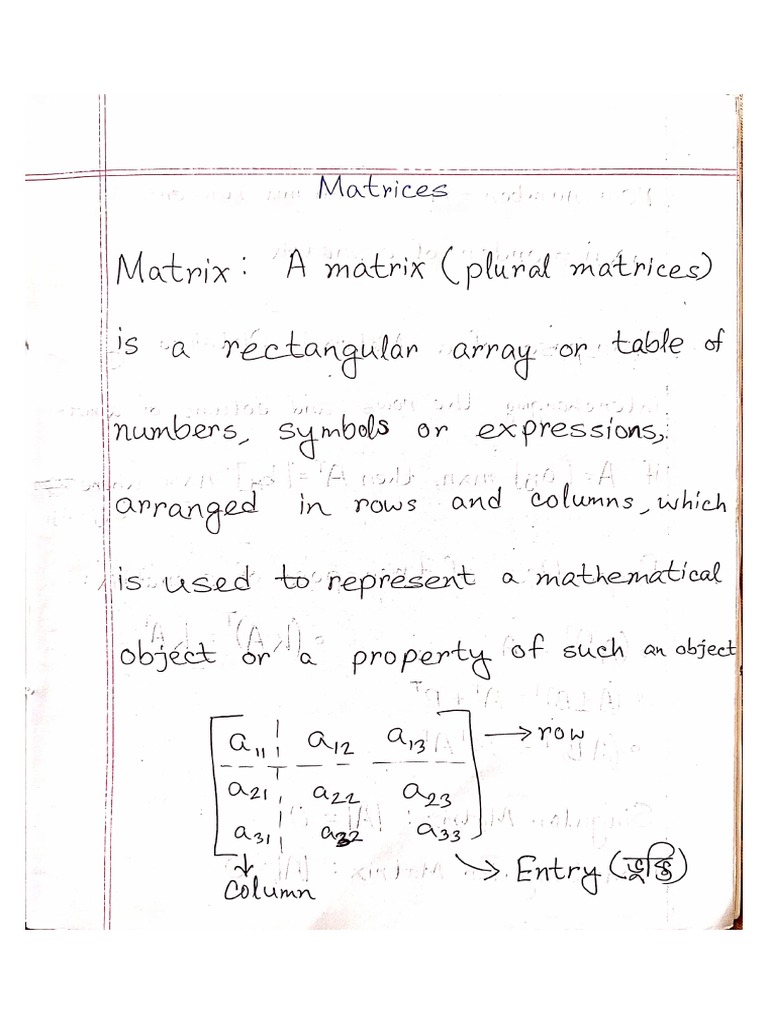 Matrices
Matrix: A matrix (plural matrices)
is a rectangular array or table of
numbers, symbols or expressions,
arranged in rows and columns, which
is used to represent a mathematical
object or a property of such an object
a11 a12 a13 → row
a21 a22 a23
a31 a32 a33
↓ → Entry (ভূক্তি)
column